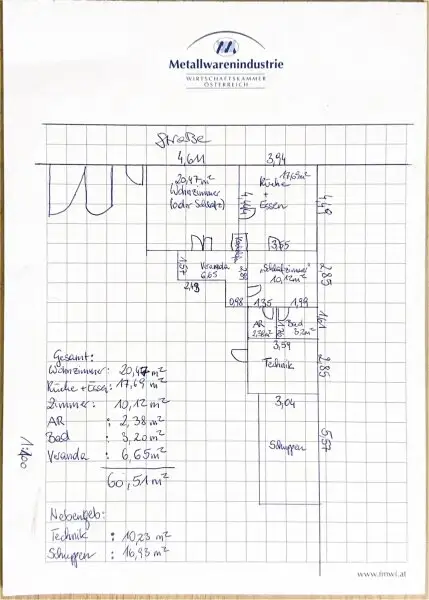 Metallwarenindustrie
WIRTSCHAFTSKAMMER
ÖSTERREICH
Straße
4,61 3,94
20,47 m²
Wohnzimmer
(oder Schlafz)
17,69 m²
Küche
+
Essen
4,44
4,49
3,55
1,57
Veranda
6,65
2,49
"Schlafzimmer"
10,12 m²
2,85
0,98 1,35 1,99
AR
2,38 m²
Bad
3,2 m²
1,61
3,59
Technik
2,85
3,04
Schuppen
5,57
Gesamt:
Wohnzimmer: 20,47 m²
Küche + Essen: 17,69 m²
Zimmer: 10,12 m²
AR : 2,38 m²
Bad : 3,20 m²
Veranda : 6,65 m²
60,51 m²
1:100
Nebengeb:
Technik : 10,23 m²
Schuppen : 16,93 m²
www.fmwi.at